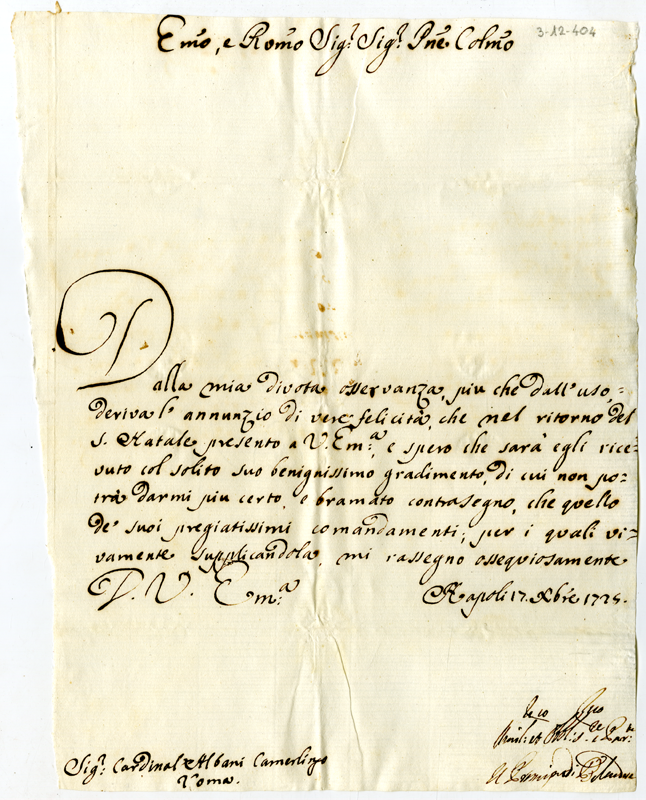 Emo, e Romo Sig.r Sig.r Pne Colmo
3-12-404
Dalla mia divota osservanza, piu che dall'uso,
deriva l'annunzio di vere felicità, che nel ritorno del
S. Natale presento a V. Em.a, e spero che sarà egli rice-
vuto col solito suo benignissimo gradimento, di cui non po-
trà darmi piu certo, e bramato contrasegno, che quello
de' suoi pregiatissimi comandamenti; per i quali vi-
vamente supplicandola, mi rassegno ossequiosamente
D. V. Em.a
Napoli 17. Xbre 1725.
Sig.r Cardinal Albani Camerlingo
Roma.